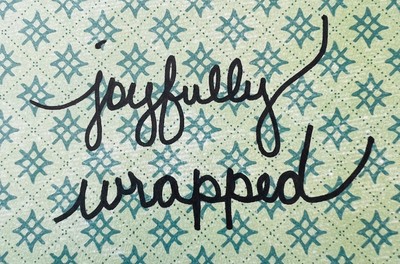 joyfully
wrapped